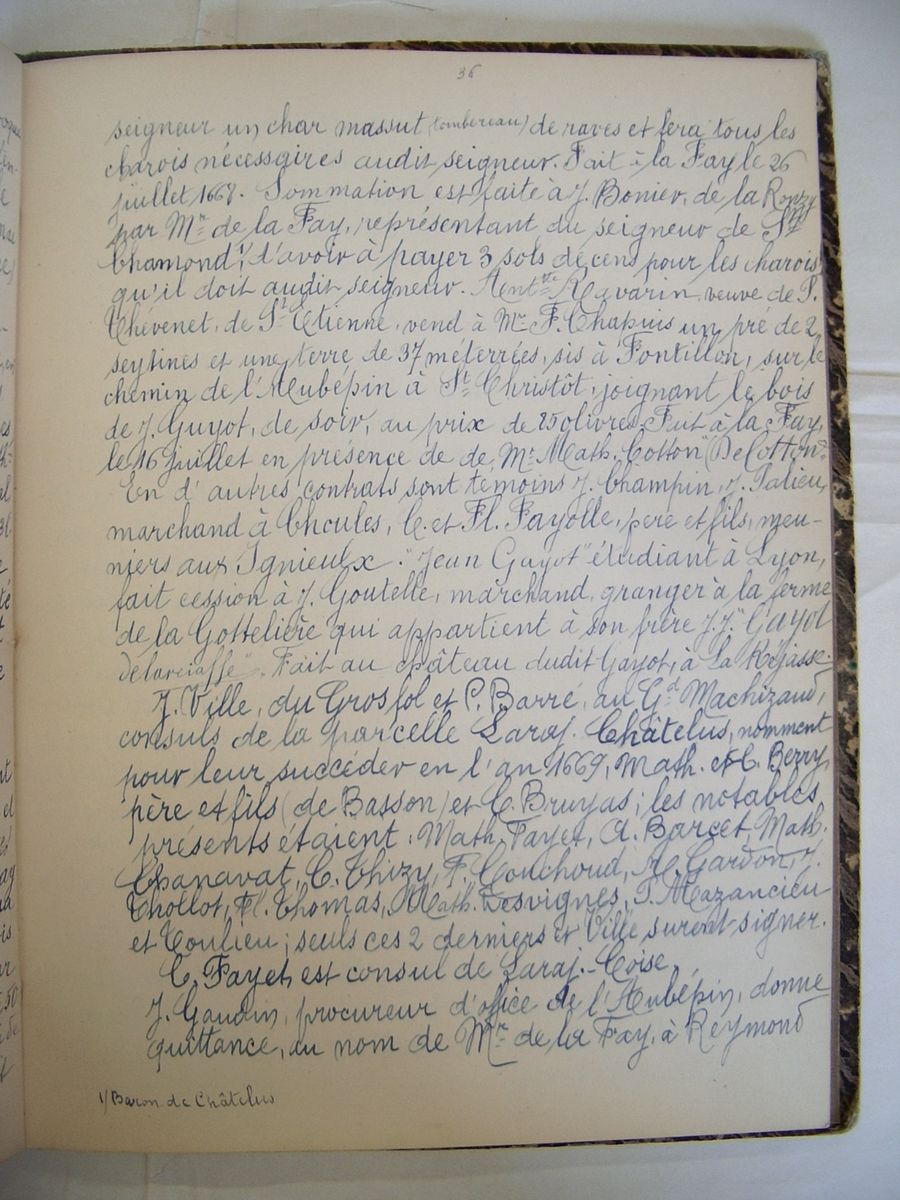 36
seigneur un char massut (tombereau) de raves et fera tous les
charois nécessaires audit seigneur. Fait à la Fay le 26
juillet 1668. Sommation est faite à J. Bonier, de la Ronzy
par Mr de la Fay, représentant du seigneur de St
Chamond 1/, d'avoir à payer 3 sols de cens pour les charois
qu'il doit audit seigneur. Anttte Ravarin, veuve de P.
Thévenet, de St Etienne, vend à Mr F. Chapuis un pré de 2
seytines et une terre de 37 méterrées, sis à Fontillon, sur le
chemin de l'Aubépin à St Christôt, joignant le bois
de J. Guyot, de soir, au prix de 250 livres. Fait à la Fay,
le 16 juillet en présence de de Mr Math. Cotton (De Cotton)
En d'autres contrats sont temoins J. Champin, J. Palieu,
marchand à Chcules, C. et Fl. Fayolle, père et fils, meu-
niers aux Ignieulx. "Jean Gayot" étudiant à Lyon,
fait cession à J. Goutelle, marchand, granger à la ferme
de la Gottelière qui appartient à son frère J.J. "Gayot
delarciasse". Fait au château dudit Gayot, à La Rejasse.
J. Ville, du Gros fol et P. Barré, au Gd Machizaud,
consuls de la parcelle Laraj. Châtelus, nomment
pour leur succéder en l'an 1669, Math. et C. Berry,
père et fils (de Basson) et C. Bruyas ; les notables
présents étaient : Math. Fayet, A. Barcet, Math.
Chanavat, C. Thizy, F. Couchoud, A. Gardon, J.
Thollot, Fl. Thomas, Math. Desvignes, P. Mazancieu
et Toulieu ; seuls ces 2 derniers et Ville surent signer.
C. Fayet, est consul de Laraj.-Coise.
J. Gaudin, procureur d'office de l'Aubépin, donne
quittance, au nom de Mr de la Fay, à Reymond
1/ Baron de Châtelus